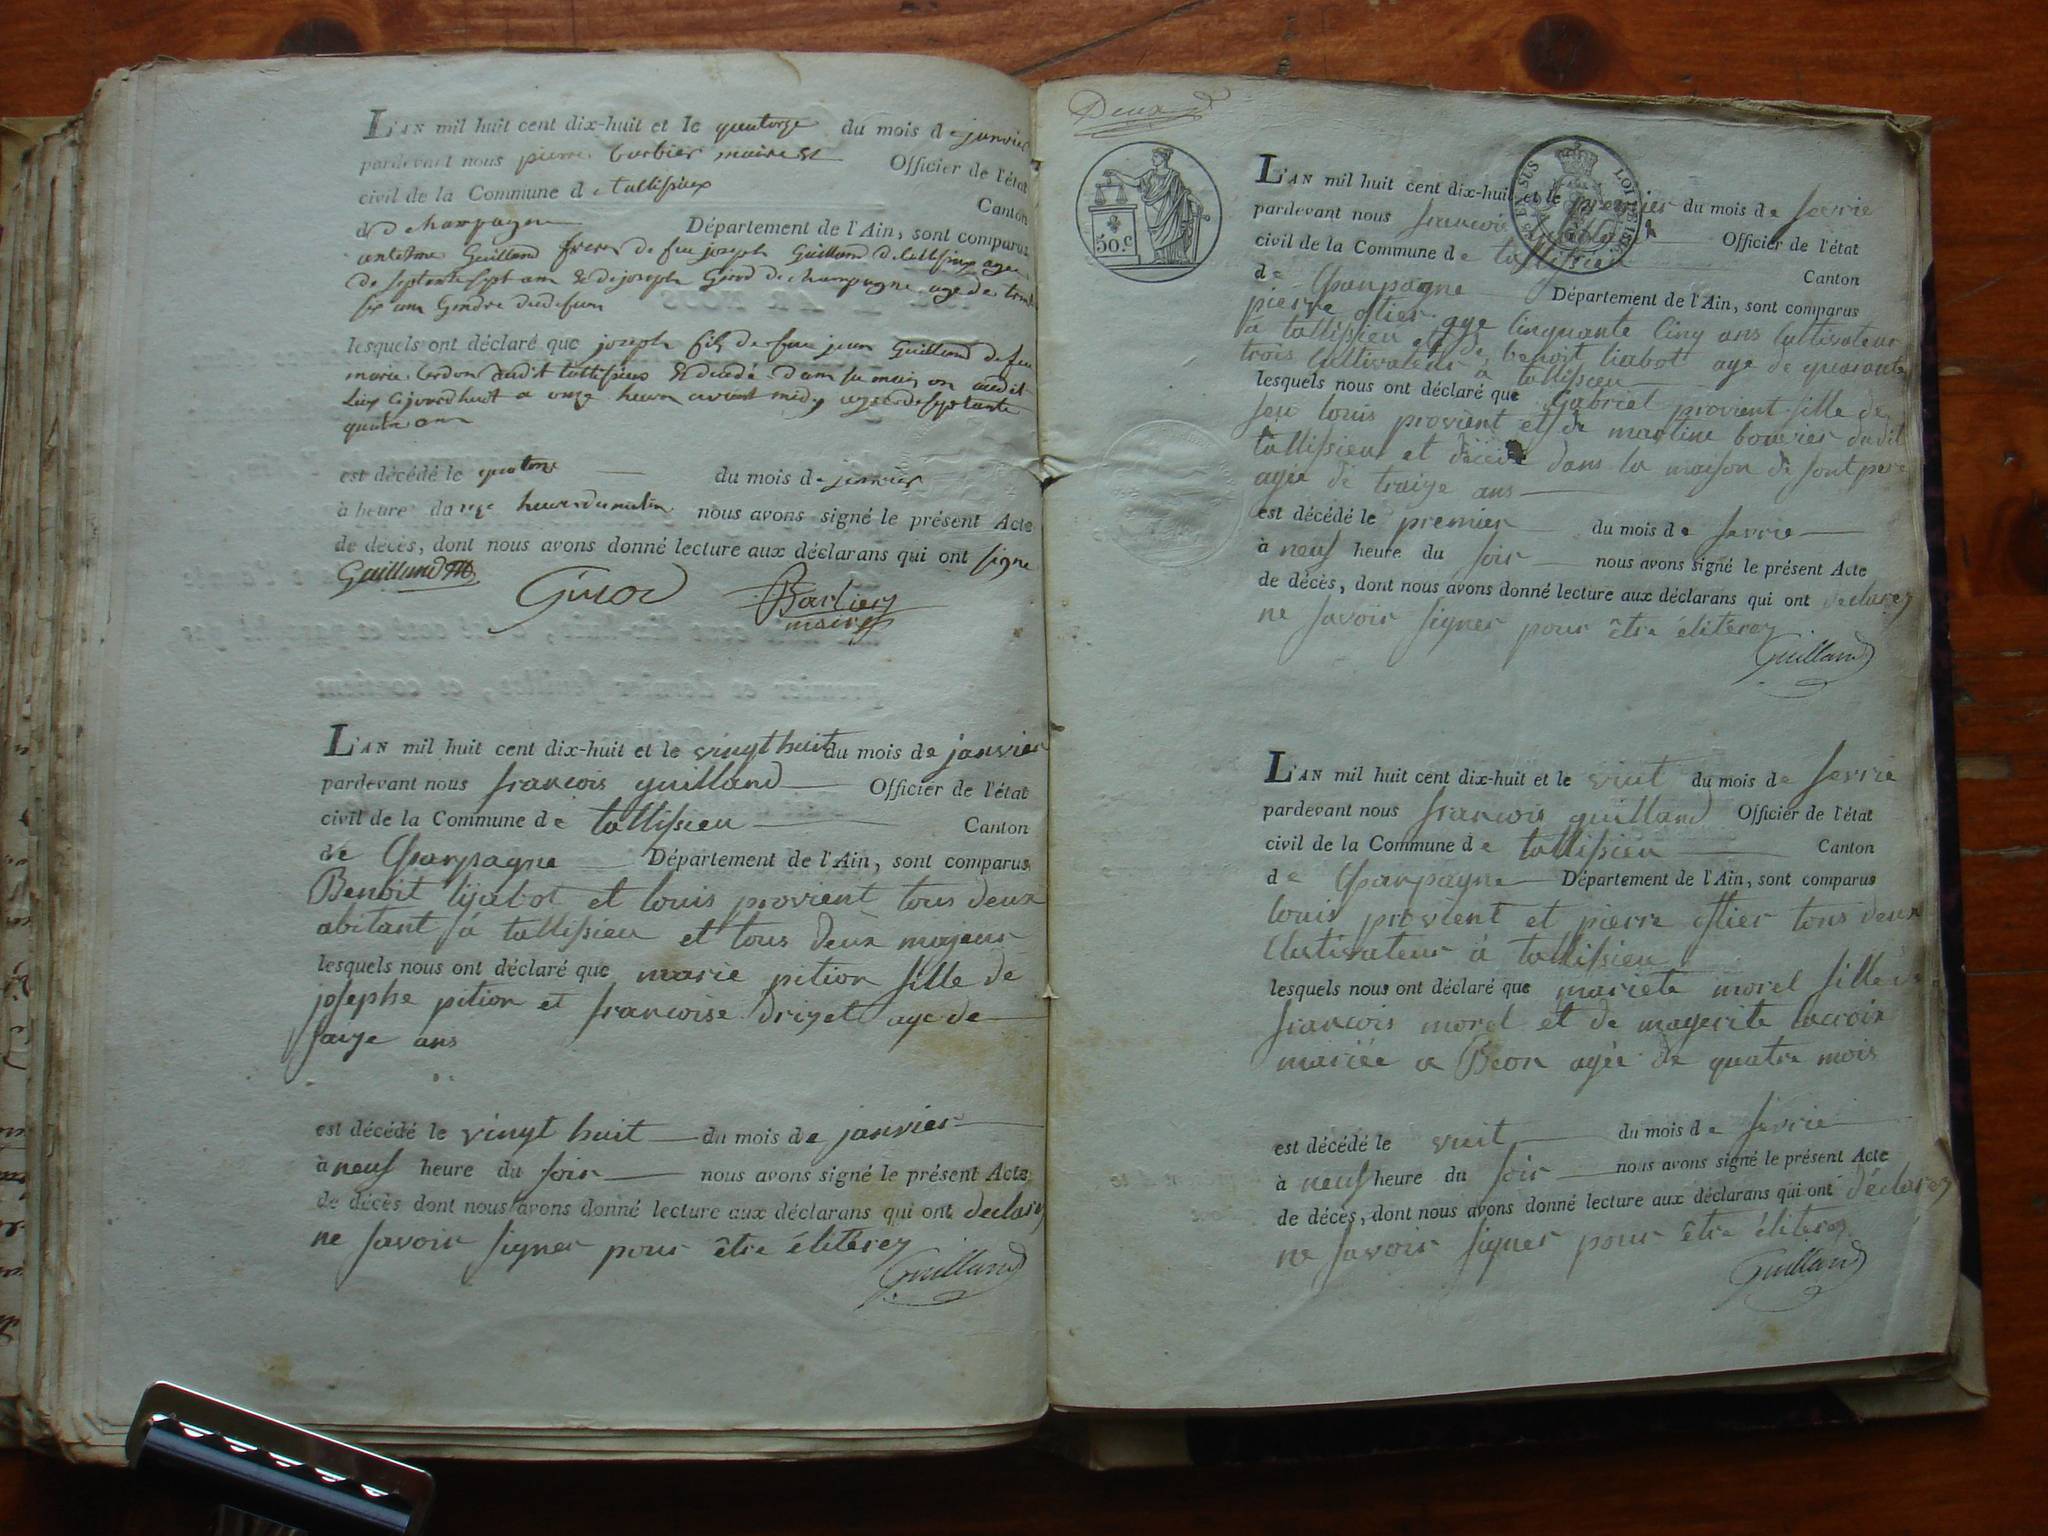 L'AN mil huit cent dix-huit et le quatorze du mois de janvier
pardevant nous pierre barbier maire et Officier de l'état
civil de la Commune de tallissieux Canton
de champagne Département de l'Ain, sont comparus
antelme Guilland frere de feu joseph Guilland de tallissieux age
de septante sept ans & de joseph Girod de champagne age de trente
six ans Gendre dudefun
lesquels ont déclaré que joseph fils de feu jean Guilland de feu
marie Cerdon dudit tallissieux Et decedé dans sa maison audit
Lieu cejourdhuit a onze heures avant midy age de septante
quatre ans
est décédé le quatorze du mois de janvier
à heure heures du matin nous avons signé le présent Acte
de décès, dont nous avons donné lecture aux déclarans qui ont signe
Guilland Girod Barbier
maire
L'AN mil huit cent dix-huit et le vingt huit du mois de janvier
pardevant nous francois guilland Officier de l'état
civil de la Commune de tallissieu Canton
de Chanpagne Département de l'Ain, sont comparus
Benoit liabot et louis provient tous deux
abitant à tallissieu et tous deux majeur
lesquels nous ont déclaré que marie pition fille de
josephe pition et francoise drizet age de
saize ans
est décédé le vingt huit du mois de janvier
à neuf heure du soir nous avons signé le présent Acte
de décès dont nous avons donné lecture aux déclarans qui ont declarez
ne savoir signer pour être élitérez
Guilland
Deux
50.c
LOI DE 1816
L'AN mil huit cent dix-huit et le premier du mois de fevrie
pardevant nous francois Officier de l'état
civil de la Commune de tallissieu Canton
de Chanpagne Département de l'Ain, sont comparus
pierre ostier age cinquante cinq ans cultivateur
à tallissieu et de benoit liabot age de quarante
trois cultivateur à tallissieu
lesquels nous ont déclaré que Gabriel provient fille de
feu louis provient et de martine bouvier dudit
tallissieu et décéde dans la maison de sont pere
agée de traize ans
est décédé le premier du mois de fevrie
à neuf heure du soir nous avons signé le présent Acte
de décès, dont nous avons donné lecture aux déclarans qui ont declarez
ne savoir signer pour être élitérez
Guilland
L'AN mil huit cent dix-huit et le vuit du mois de fevrie
pardevant nous francois guilland Officier de l'état
civil de la Commune de tallissieu Canton
de Chanpagne Département de l'Ain, sont comparus
louis provient et pierre ostier tous deux
Cultivateur à tallissieu
lesquels nous ont déclaré que mariete morel fille de
francois morel et de magerite lacroix
mariée a Beon agée de quatre mois
est décédé le vuit du mois de fevrie
à neuf heure du soir nous avons signé le présent Acte
de décès, dont nous avons donné lecture aux déclarans qui ont déclarez
ne savoir signer pour être éliterez
Guilland